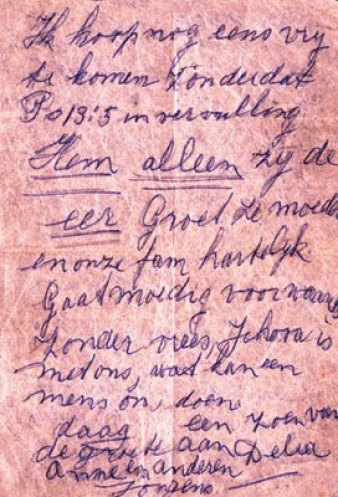 Ik hoop nog eens vry
te komen zonder dat
Ps 19:5 in vervulling
Hem alleen zy de
eer Groet ze moeder
en onze fam hartelyk
Gaat moedig voorwaarts
zonder vrees, Jehova is
met ons, wat kan een
mens on doen
daag een zoen van
de groete aan Delia
en anderen